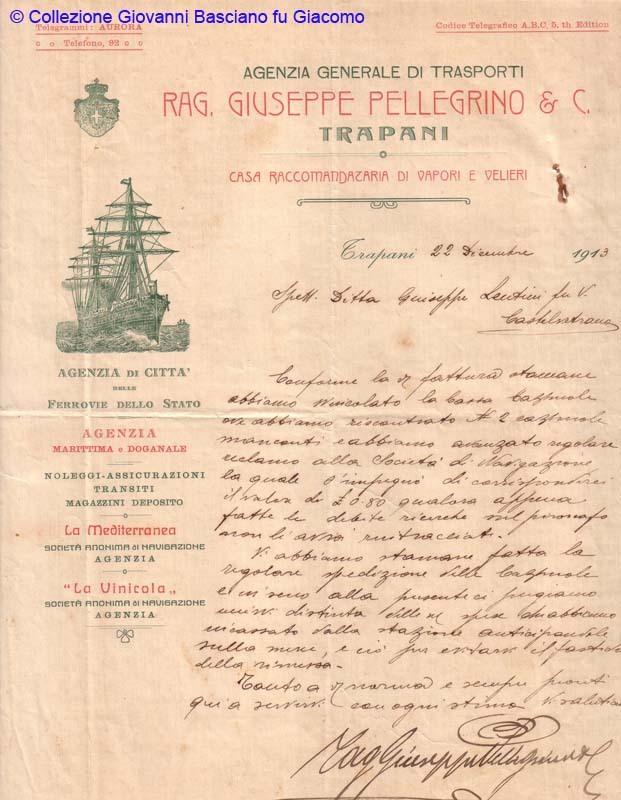 © Collezione Giovanni Basciano fu Giacomo
Telegrammi: AURORA
Telefono, 92
Codice Telegrafico A.B.C, 5. th Edition
AGENZIA GENERALE DI TRASPORTI
RAG. GIUSEPPE PELLEGRINO & C.
TRAPANI
CASA RACCOMANDAZARIA DI VAPORI E VELIERI
Trapani 22 Dicembre 1913
Spett. Ditta Giuseppe Lentini fu V.
Castelvetrano
AGENZIA DI CITTA'
DELLE
FERROVIE DELLO STATO
AGENZIA
MARITTIMA e DOGANALE
NOLEGGI-ASSICURAZIONI
TRANSITI
MAGAZZINI DEPOSITO
La Mediterranea
SOCIETÀ ANONIMA di NAVIGAZIONE
AGENZIA
"La Vinicola"
SOCIETÀ ANONIMA di NAVIGAZIONE
AGENZIA
Conforme la fattura stamane
abbiamo svincolato la Cassa
ove abbiamo riscontrato N. 2
mancanti e abbiamo avanzato regolare
reclamo alla Società di Navigazione
la quale s'impegnò di corrisponderci
il valore di £ 0.80 qualora appena
fatte le debite ricerche sul piroscafo
non li avrà rintracciati.
Vi abbiamo stamane fatta la
regolare spedizione delle
e in seno alla presente ci pregiamo
distinta delle spese che abbiamo
incassato dalla stazione
sulla merce, e ciò per evitarvi il fastidio
della rimessa.
Tanto a norma e sempre pronti
qui a servirvi con ogni stima Vi salutiamo
Rag Giuseppe Pellegrino & C